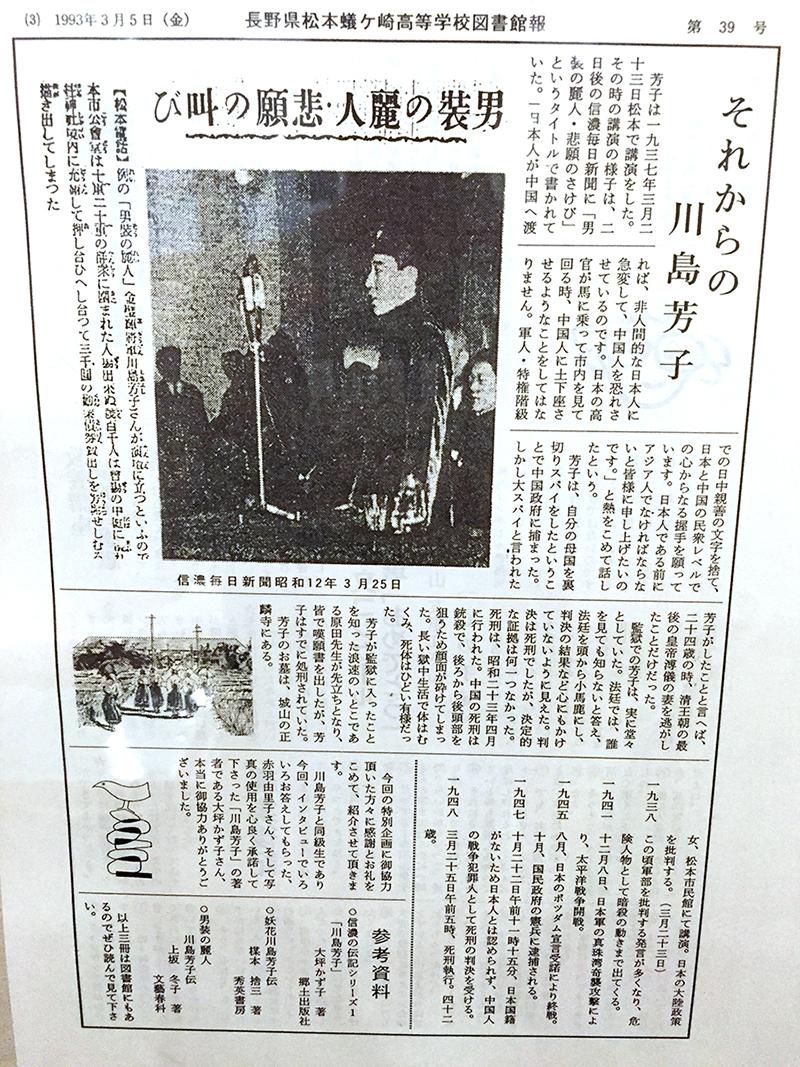 (3) 1993年3月5日（金）
長野県松本蟻ケ崎高等学校図書館報
第 39 号
それからの
川島芳子
芳子は一九三七年三月二
十三日松本で講演をした。
その時の講演の様子は、二
日後の信濃毎日新聞に「男
装の麗人・悲願のさけび」
というタイトルで書かれて
いた。「日本人が中国へ渡
れば、非人間的な日本人に
急変して、中国人を恐れさ
せているのです。日本の高
官が馬に乗って市内を見て
回る時、中国人に土下座さ
せるようなことをしてはな
りません。軍人・特権階級
での日中親善の文字を捨て、
日本と中国の民衆レベルで
の心からなる握手を願って
います。日本人である前に
アジア人でなければならな
いと皆様に申し上げたいの
です。」と熱をこめて話し
たという。
芳子は、自分の母国を裏
切りスパイをしたというこ
とで中国政府に捕まった。
しかし大スパイと言われた
男装の麗人・悲願の叫び
【松本電話】例の「男装の麗人」金璧輝将軍川島芳子さんが演壇に立つといふので
本市公会堂は十重二十重の群衆に囲まれた
描き出してしまつた
信濃毎日新聞昭和12年3月25日
芳子がしたことと言へば、
二十四歳の時、清王朝の最
後の皇帝溥儀の妻を逃がし
たことだけだった。
監獄での芳子は、実に堂々
としていた。法廷では、誰
を見ても知らないと答え、
法廷を頭から小馬鹿にし、
判決の結果など心にもかけ
ていないように見えた。判
決は死刑でしたが、決定的
な証拠は何一つなかった。
死刑は、昭和二十三年四月
に行われた。中国の死刑は
銃殺で、後ろから後頭部を
狙うため顔面が砕けてしまっ
た。長い獄中生活で体はむ
くみ、死体はひどい有様だっ
た。
芳子が監獄に入ったこと
を知った浪速のいとこであ
る原田先生が先立ちとなり、
皆で嘆願書を出したが、芳
子はすでに処刑されていた。
芳子のお墓は、城山の正
麟寺にある。
一九三八
女、松本市民館にて講演。日本の大陸政策
を批判する。（三月二十三日）
この頃軍部を批判する発言が多くなり、危
険人物として暗殺の動きまで出てくる。
一九四一
十二月八日、日本軍の真珠湾奇襲攻撃によ
り、太平洋戦争開戦。
一九四五
八月、日本のポツダム宣言受諾により終戦。
十月、国民政府の憲兵に逮捕される。
一九四七
十月二十二日午前十一時十五分、日本国籍
がないため日本人とは認められず、中国人
の戦争犯罪人として死刑の判決を受ける。
一九四八
三月二十五日午前五時、死刑執行。四十二
歳。
今回の特別企画に御協力
頂いた方々に感謝とお礼を
こめて、紹介させて頂きま
す。
川島芳子と同級生であり
今回、インタビューでいろ
いろお答えしてもらった、
赤羽由里子さん、そして写
真の使用を心良く承諾して
下さった「川島芳子」の著
者である大坪かず子さん、
本当に御協力ありがとうご
ざいました。
参考資料
○信濃の伝記シリーズ1
「川島芳子」
大坪かず子 著
郷土出版社
○妖花川島芳子伝
楳本 捨三 著
秀英書房
○男装の麗人
川島芳子伝
上坂 冬子 著
文藝春秋
以上三冊は図書館にもあ
るのでぜひ読んで見て下さ
い。